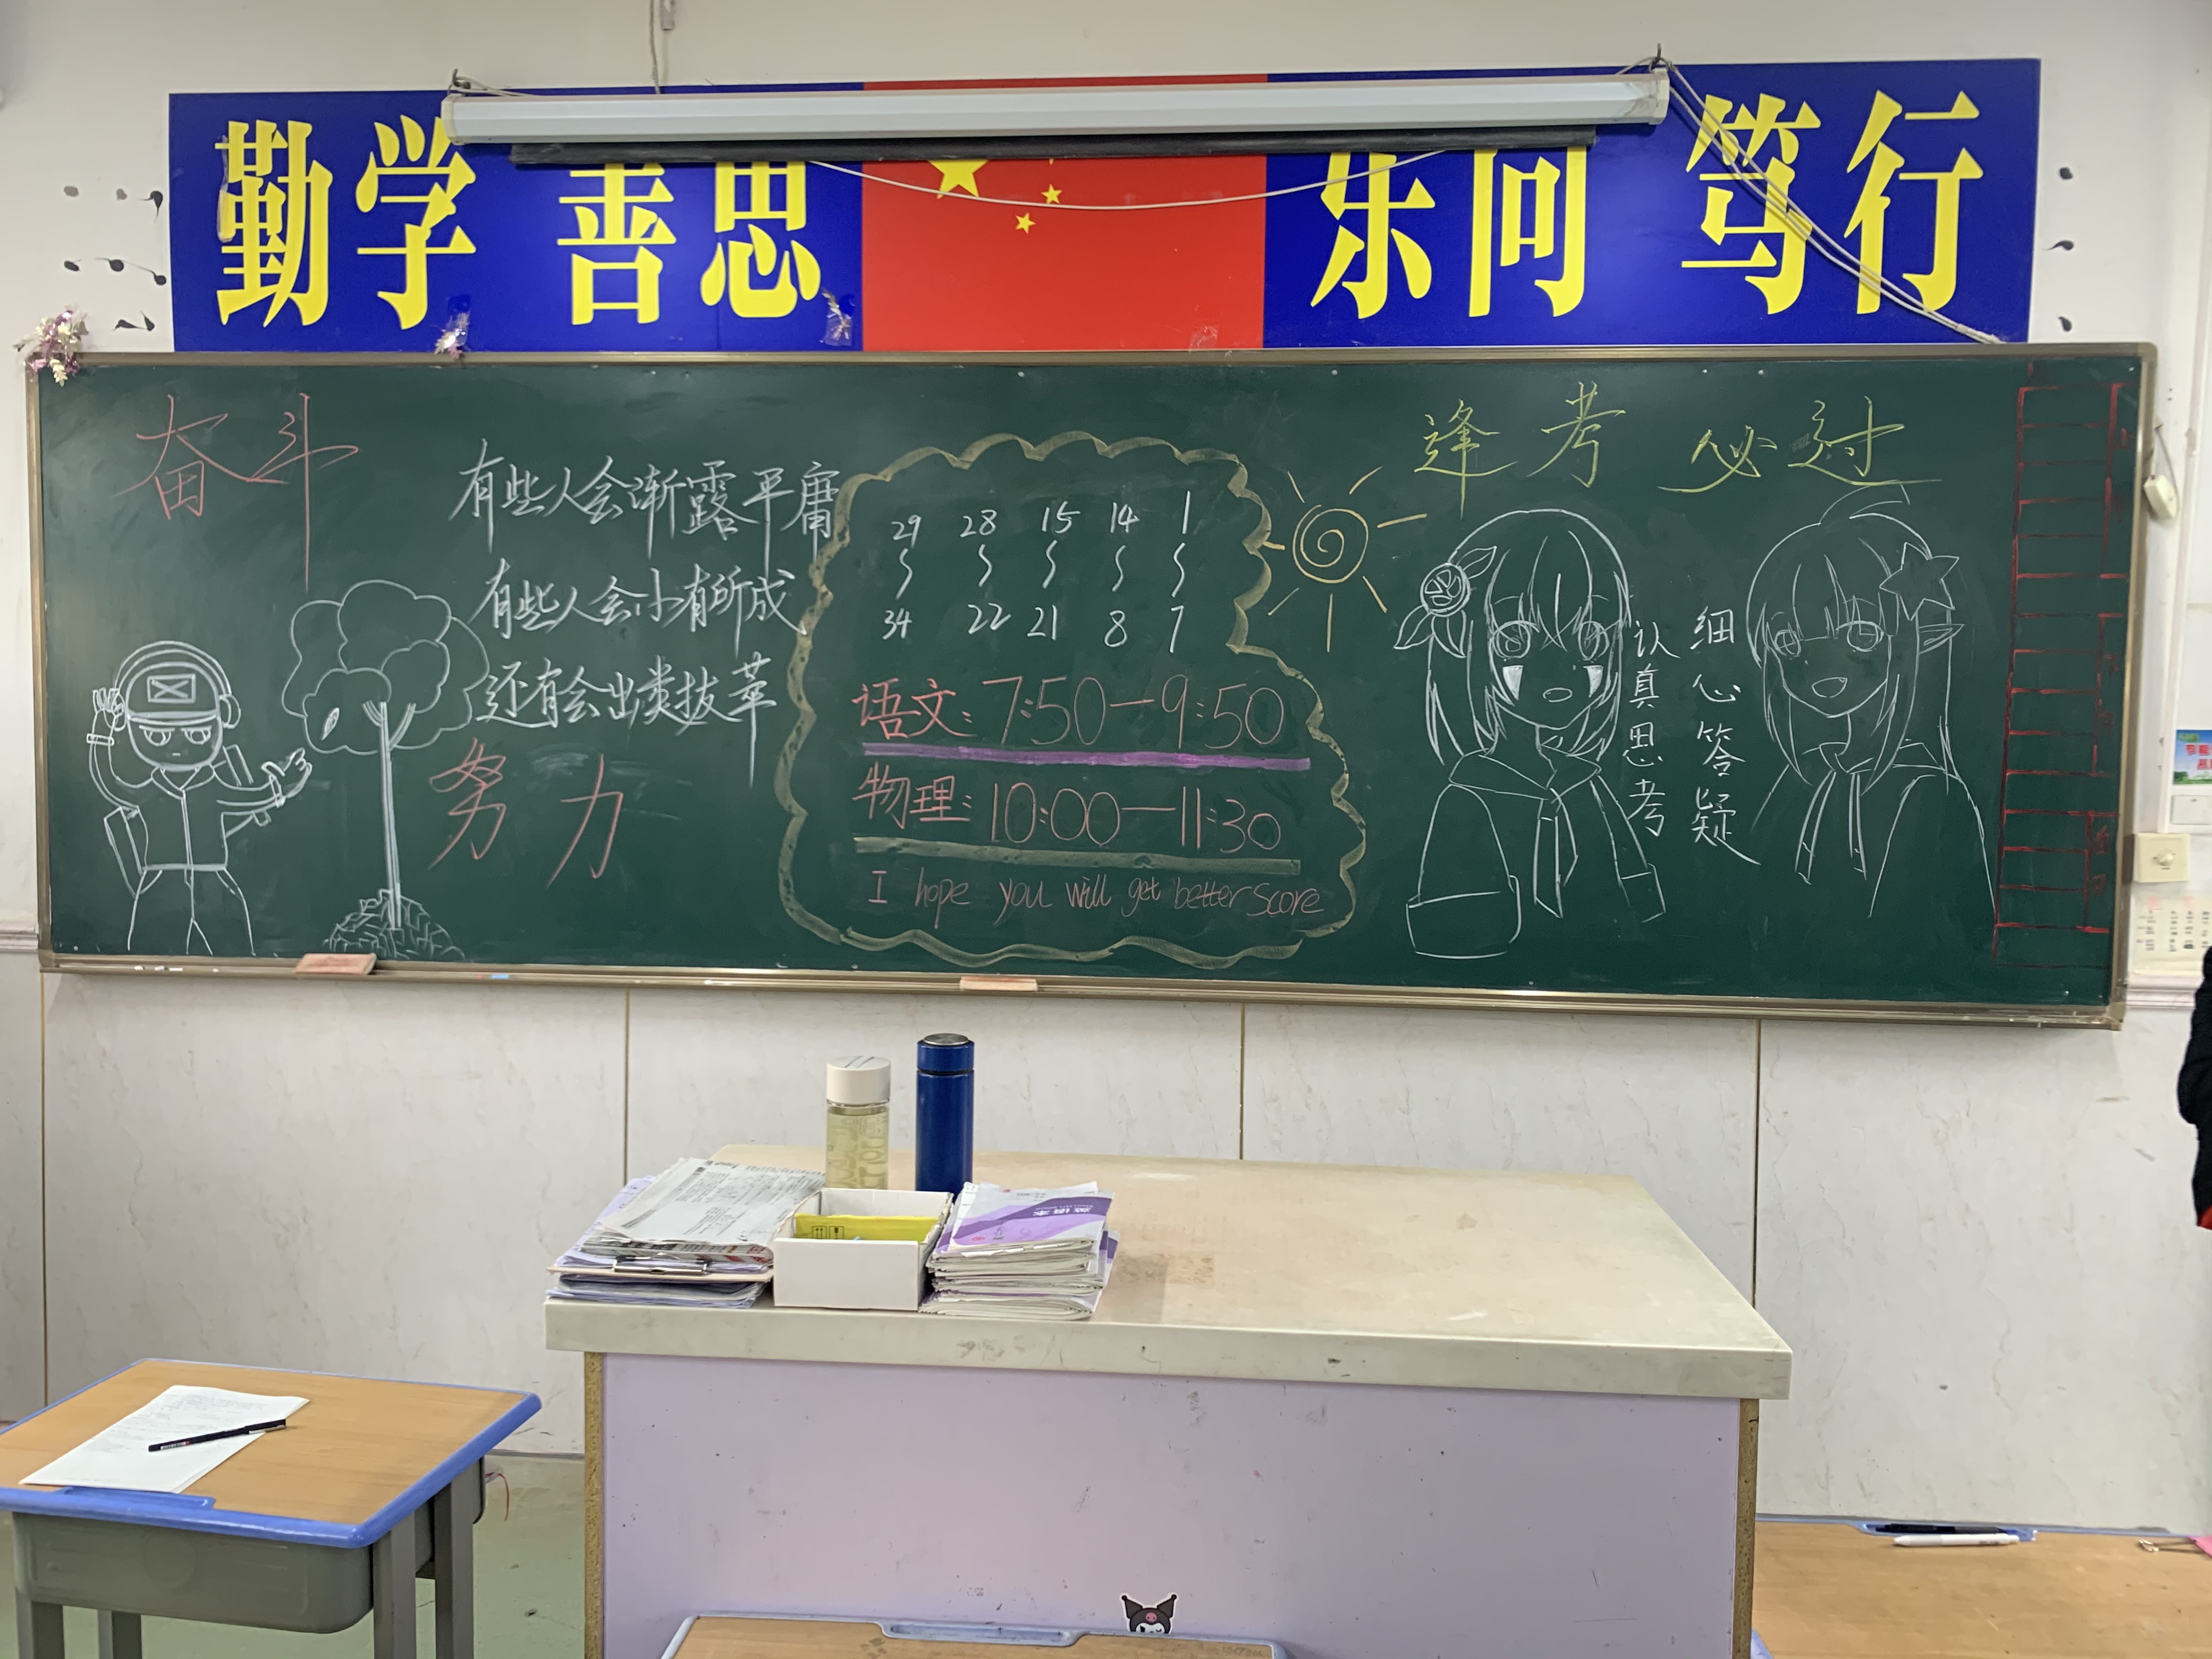 勤学 善思 乐问 笃行
奋斗
有些人会渐露平庸
有些人会小有所成
还有会出类拔萃
努力
29 28 15 14 1
34 22 21 8 7
语文: 7:50—9:50
物理: 10:00—11:30
I hope you will get better score
逢考必过
认真思考
细心答疑